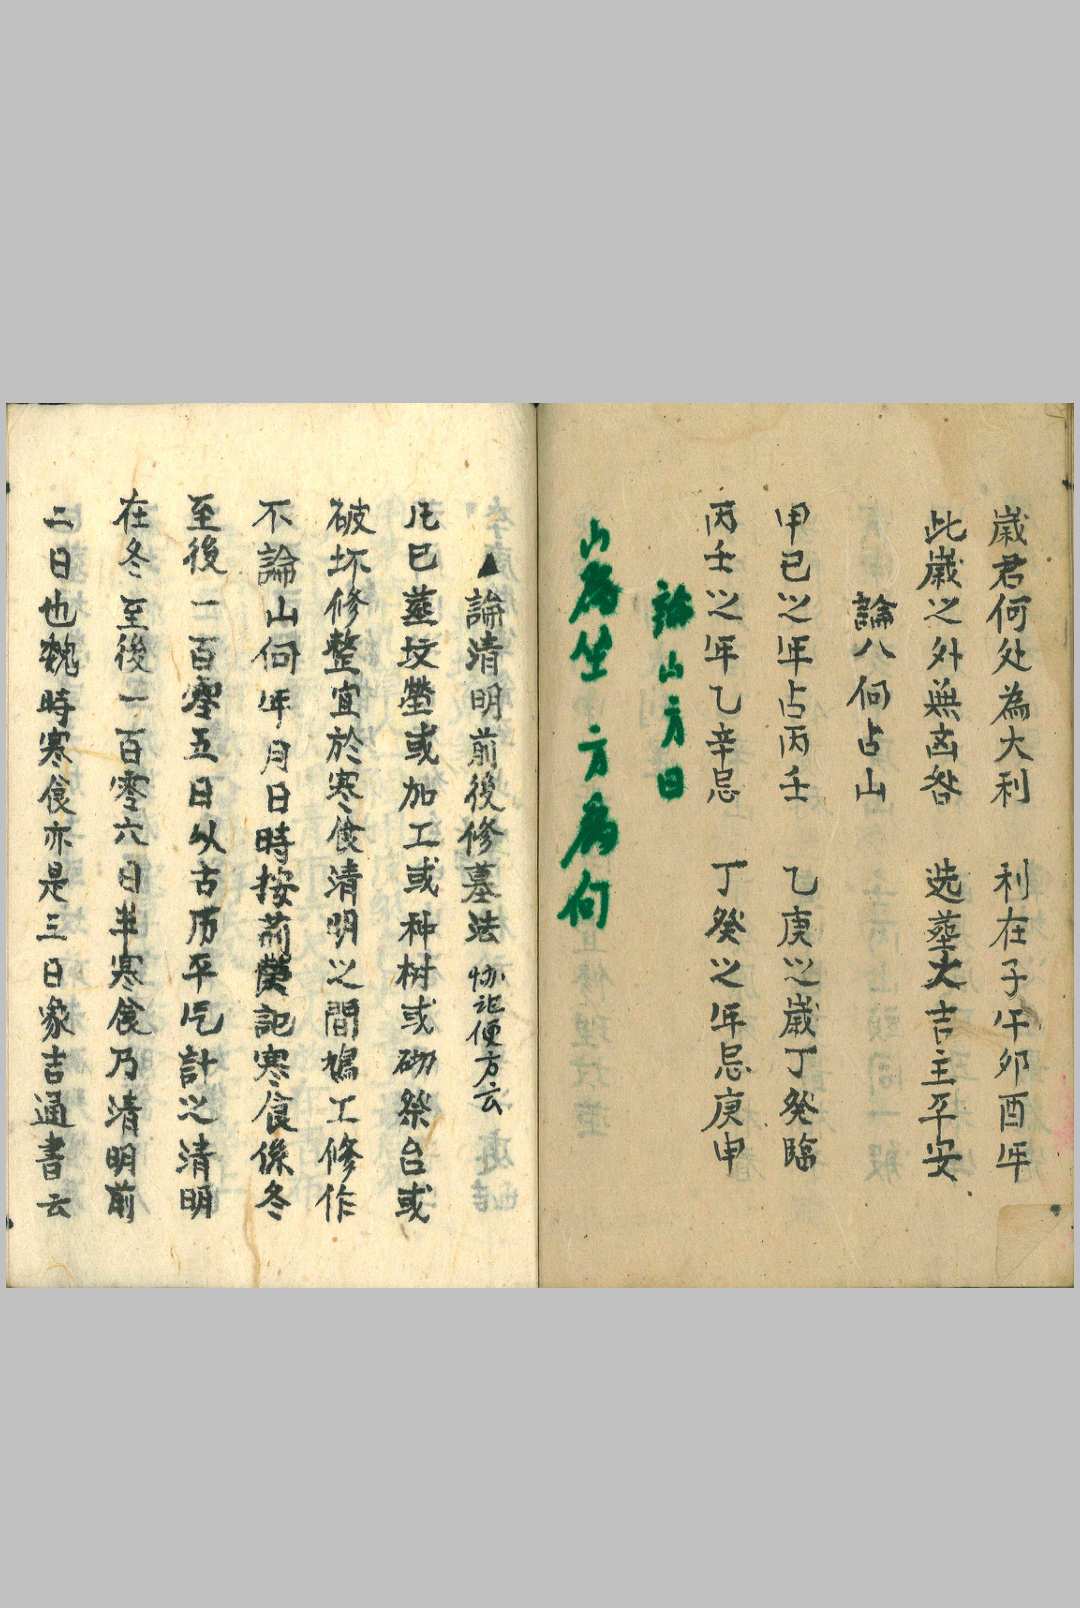 歲君何处為大利　利在子午卯酉年
此歲之外無凶咎　选塟大吉主平安
論八向占山
甲己之年占丙壬　乙庚之歲丁癸臨
丙壬之年乙辛忌　丁癸之年忌庚申
論山方日
山為坐　方為向
▲論清明前後修墓法　协記便方云
凡已塟坟塋或加工或种树或砌祭台或
破坏修整宜於寒食清明之間鳩工修作
不論山向年月日時按荊 記寒食係冬
至後一百零五日以古历平气計之清明
在冬至後一百零六日半寒食乃清明前
二日也魏時寒食亦是三日象吉通書云